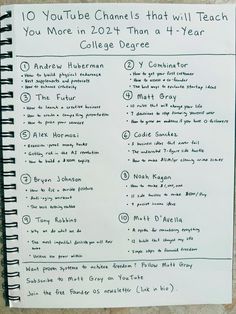 10 YouTube Channels that will Teach
You More in 2024 Than a 4-Year
College Degree
1 Andrew Huberman
- How to build physical endurance
- Best supplements and protocols
- How to enhance creativity
2 Y Combinator
- How to get your first customer
- How to be a co-founder
- The best ways to evaluate startup ideas
3 The Futur
- How to launch a creative business
- How to create a compelling
- How to price your services
4 Matt Gray
- 10 rules that will change your life
- 7 decisions to stop
- How to grow an audience if you have 0 followers
5 Alex Hormozi
- Exercises
- Getting rich in the AI revolution
- How to build a $100M
6 Codie Sanchez
- 5 business ideas that never fail
- The underrated 7-figure side hustle
- How to make
7 Bryan Johnson
- How to fix a terrible
- Anti-aging
- The best
8 Noah Kagan
- How to make $1,000,000
- 10 side hustles to make
- A passive income idea
9 Tony Robbins
- Why we do what we do
- The most impactful decision you will ever
make
- Unlock the power within
10 Matt D'Avella
- A system for remembering everything
- 12 habits that changed my life
- Simple steps to financial freedom
Want proven systems to achieve freedom? Follow Matt Gray
Subscribe to Matt Gray on YouTube
Join the free Founder OS newsletter (link in bio).